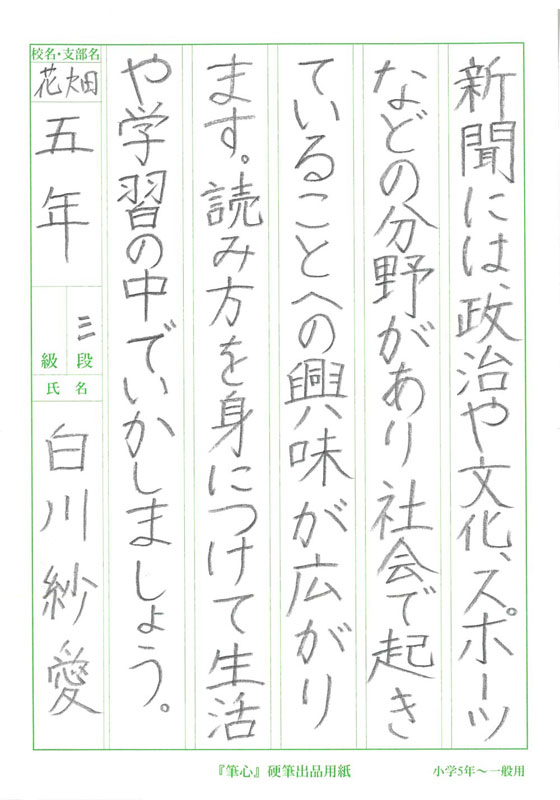 新聞には、政治や文化、スポーツ
などの分野があり社会で起き
ていることへの興味が広がり
ます。読み方を身につけて生活
や学習の中でいかしましょう。
校名・支部名
花畑
五年
三
級 段
氏 名
白川紗愛
『筆心』硬筆出品用紙
小学5年～一般用